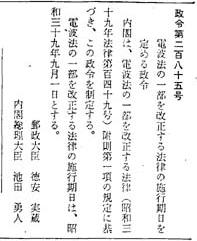 政令第二百八十五号
電波法の一部を改正する法律の施行期日を
定める政令
内閣は、電波法の一部を改正する法律（昭和三
十九年法律第百四十九号）附則第一項の規定に基
づき、この政令を制定する。
電波法の一部を改正する法律の施行期日は、昭
和三十九年九月一日とする。
内閣総理大臣　池田　勇人
郵政大臣　徳安　実蔵